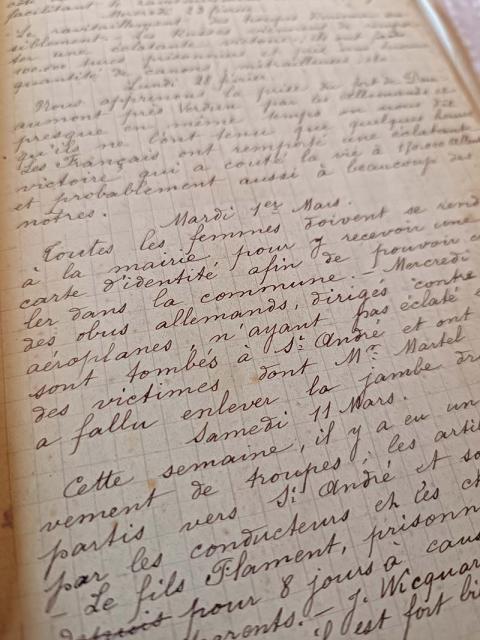 facilitant le
Mercredi 23 février.
Le ravitaillement des troupes
siblement. Les Russes viennent de
ter une éclatante victoire, ils ont fait
100.000 turcs prisonniers et pris une
quantité de canons, mitrailleuses etc.
Lundi 28 février.
Nous apprenons la prise du fort de Dou-
aumont près Verdun par les allemands et
presque en même temps on nous dit
qu'ils ne l'ont tenu que quelques heures
Les Français ont remporté une éclatante
victoire qui a couté la vie à 150.000 allem
et probablement aussi à beaucoup des
nôtres.
Mardi 1er Mars.
Toutes les femmes doivent se rend
à la mairie pour y recevoir une
carte d'identité afin de pouvoir c
ler dans la commune. - Mercredi
des obus allemands, dirigés contre
aéroplanes, n'ayant pas éclaté e
sont tombés à St André et ont
des victimes dont Mr Martel
a fallu enlever la jambe dr
Samedi 11 Mars.
Cette semaine, il y a eu un
vement de troupes; les artil
partis vers St André et so
par les conducteurs ch les ch
- Le fils Flament, prisonn
depuis pour 8 jours à caus
parents. - J. Wicquar
il est fort bi